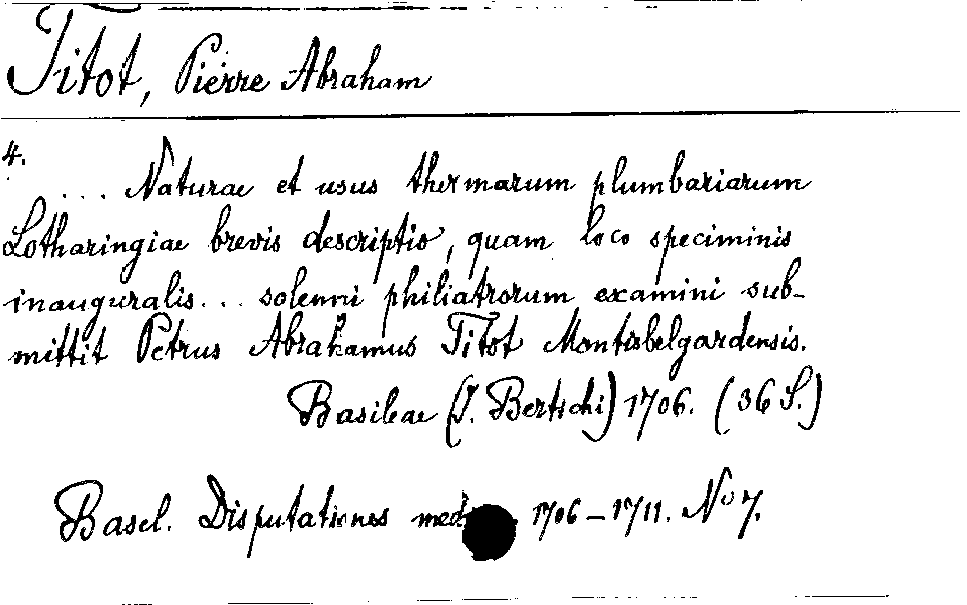 Titot, Pierre Abraham
4.
... Naturae et usus thermarum plumbariarum
Lotharingiae brevis descriptio, quam loco speciminis
inauguralis... solenni philiatrorum examini sub-
mittit Petrus Abrahamus Titot Montisbelgardensis.
Basileae (J. Bertschi) 1706. (36 S.)
Basel. Disputationes med 1706-1711. No 7.